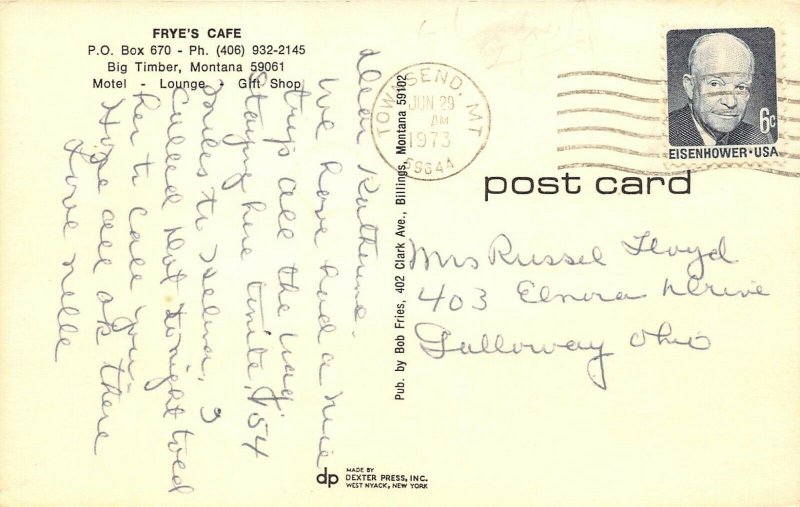 FRYE'S CAFE
P.O. Box 670 - Ph. (406) 932-2145
Big Timber, Montana 59061
Motel - Lounge - Gift Shop
Dear Katherine.
We have had a nice
trip all the way
Staying here tonite, 154
miles to Helena,
Called Dot tonight told
her to call you.
Hope all ok there
Love Nelle
Pub. by Bob Fries, 402 Clark Ave., Billings, Montana 59102
dp
MADE BY
DEXTER PRESS, INC.
WEST NYACK, NEW YORK
TOWNSEND, MT
JUN 29
AM
1973
59644
6c
EISENHOWER·USA
post card
Mrs Russel Floyd
403 Elnora Drive
Galloway Ohio